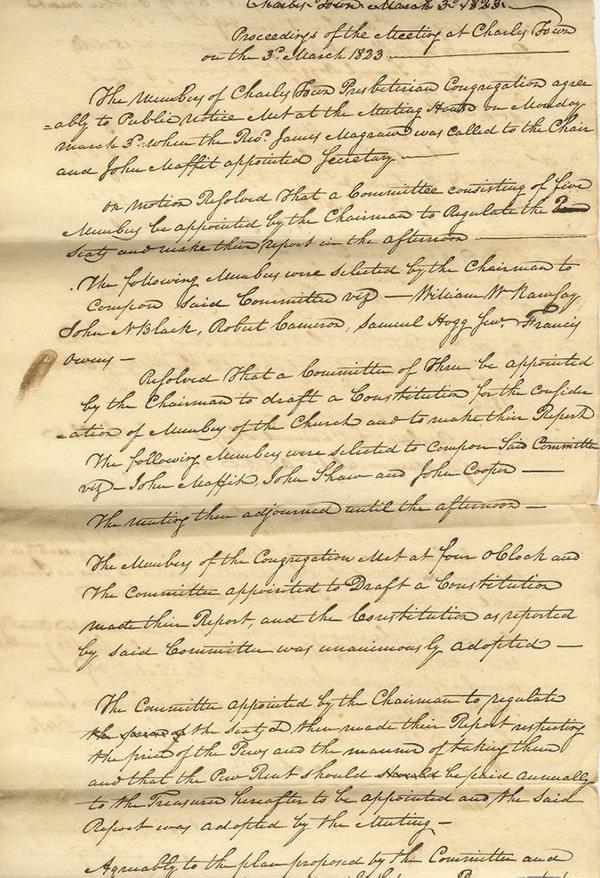 Charles Town March 3d. 1823.
Proceedings of the Meeting at Charles Town
on the 3d. March 1823
The Members of Charles Town Presbeterian Congregation agree
=ably to Public Notice Met at the Meeting House on Monday
march 3d. when the Revd. James Magraw was called to the Chair
and John Maffit appointed Secretary
on motion Resolved That a Committee consisting of five
Members be appointed by the Chairman to Regulate the
Seats and make their Report in the afternoon
The following Members were selected by the Chairman to
Compose said Committee viz — William W Ramsay
John N Black, Robert Cameron, Samuel Hogg Junr. Francis
Owens —
Resolved That a Committee of Three be appointed
by the Chairman to draft a Constitution for the consider
=ation of Members of the Church and to make their Report
The following Members were selected to compose Said Committee
viz — John Maffit John Shaw and John Cooper —
The meeting then adjourned until the afternoon —
The Members of the Congregation Met at four oClock and
The Committee appointed to Draft a Constitution
made their Report and the Constitution as reported
by said Committee was unanimously adopted —
The Committee appointed by the Chairman to regulate
the seats then made their Report respecting
the price of the Pews and the manner of taking them
and that the Pew Rent should should be paid annually
to the Treasurer hereafter to be appointed and the said
Report was adopted by the Meeting —
Agreeably to the plan proposed by the Committee and